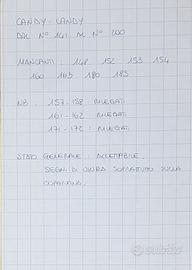 CANDY CANDY
DAL N° 141 AL N° 200
MANCANTI : 148 152 153 154
160 165 180 183
NB. 157-158 : RILEGATI
161-162 RILEGATI
171-172 : RILEGATI
STATO GENERALE : ACCETTABILE.
SEGNI DI USURA SOPRATTUTTO SULLA
COPERTINA.
subito